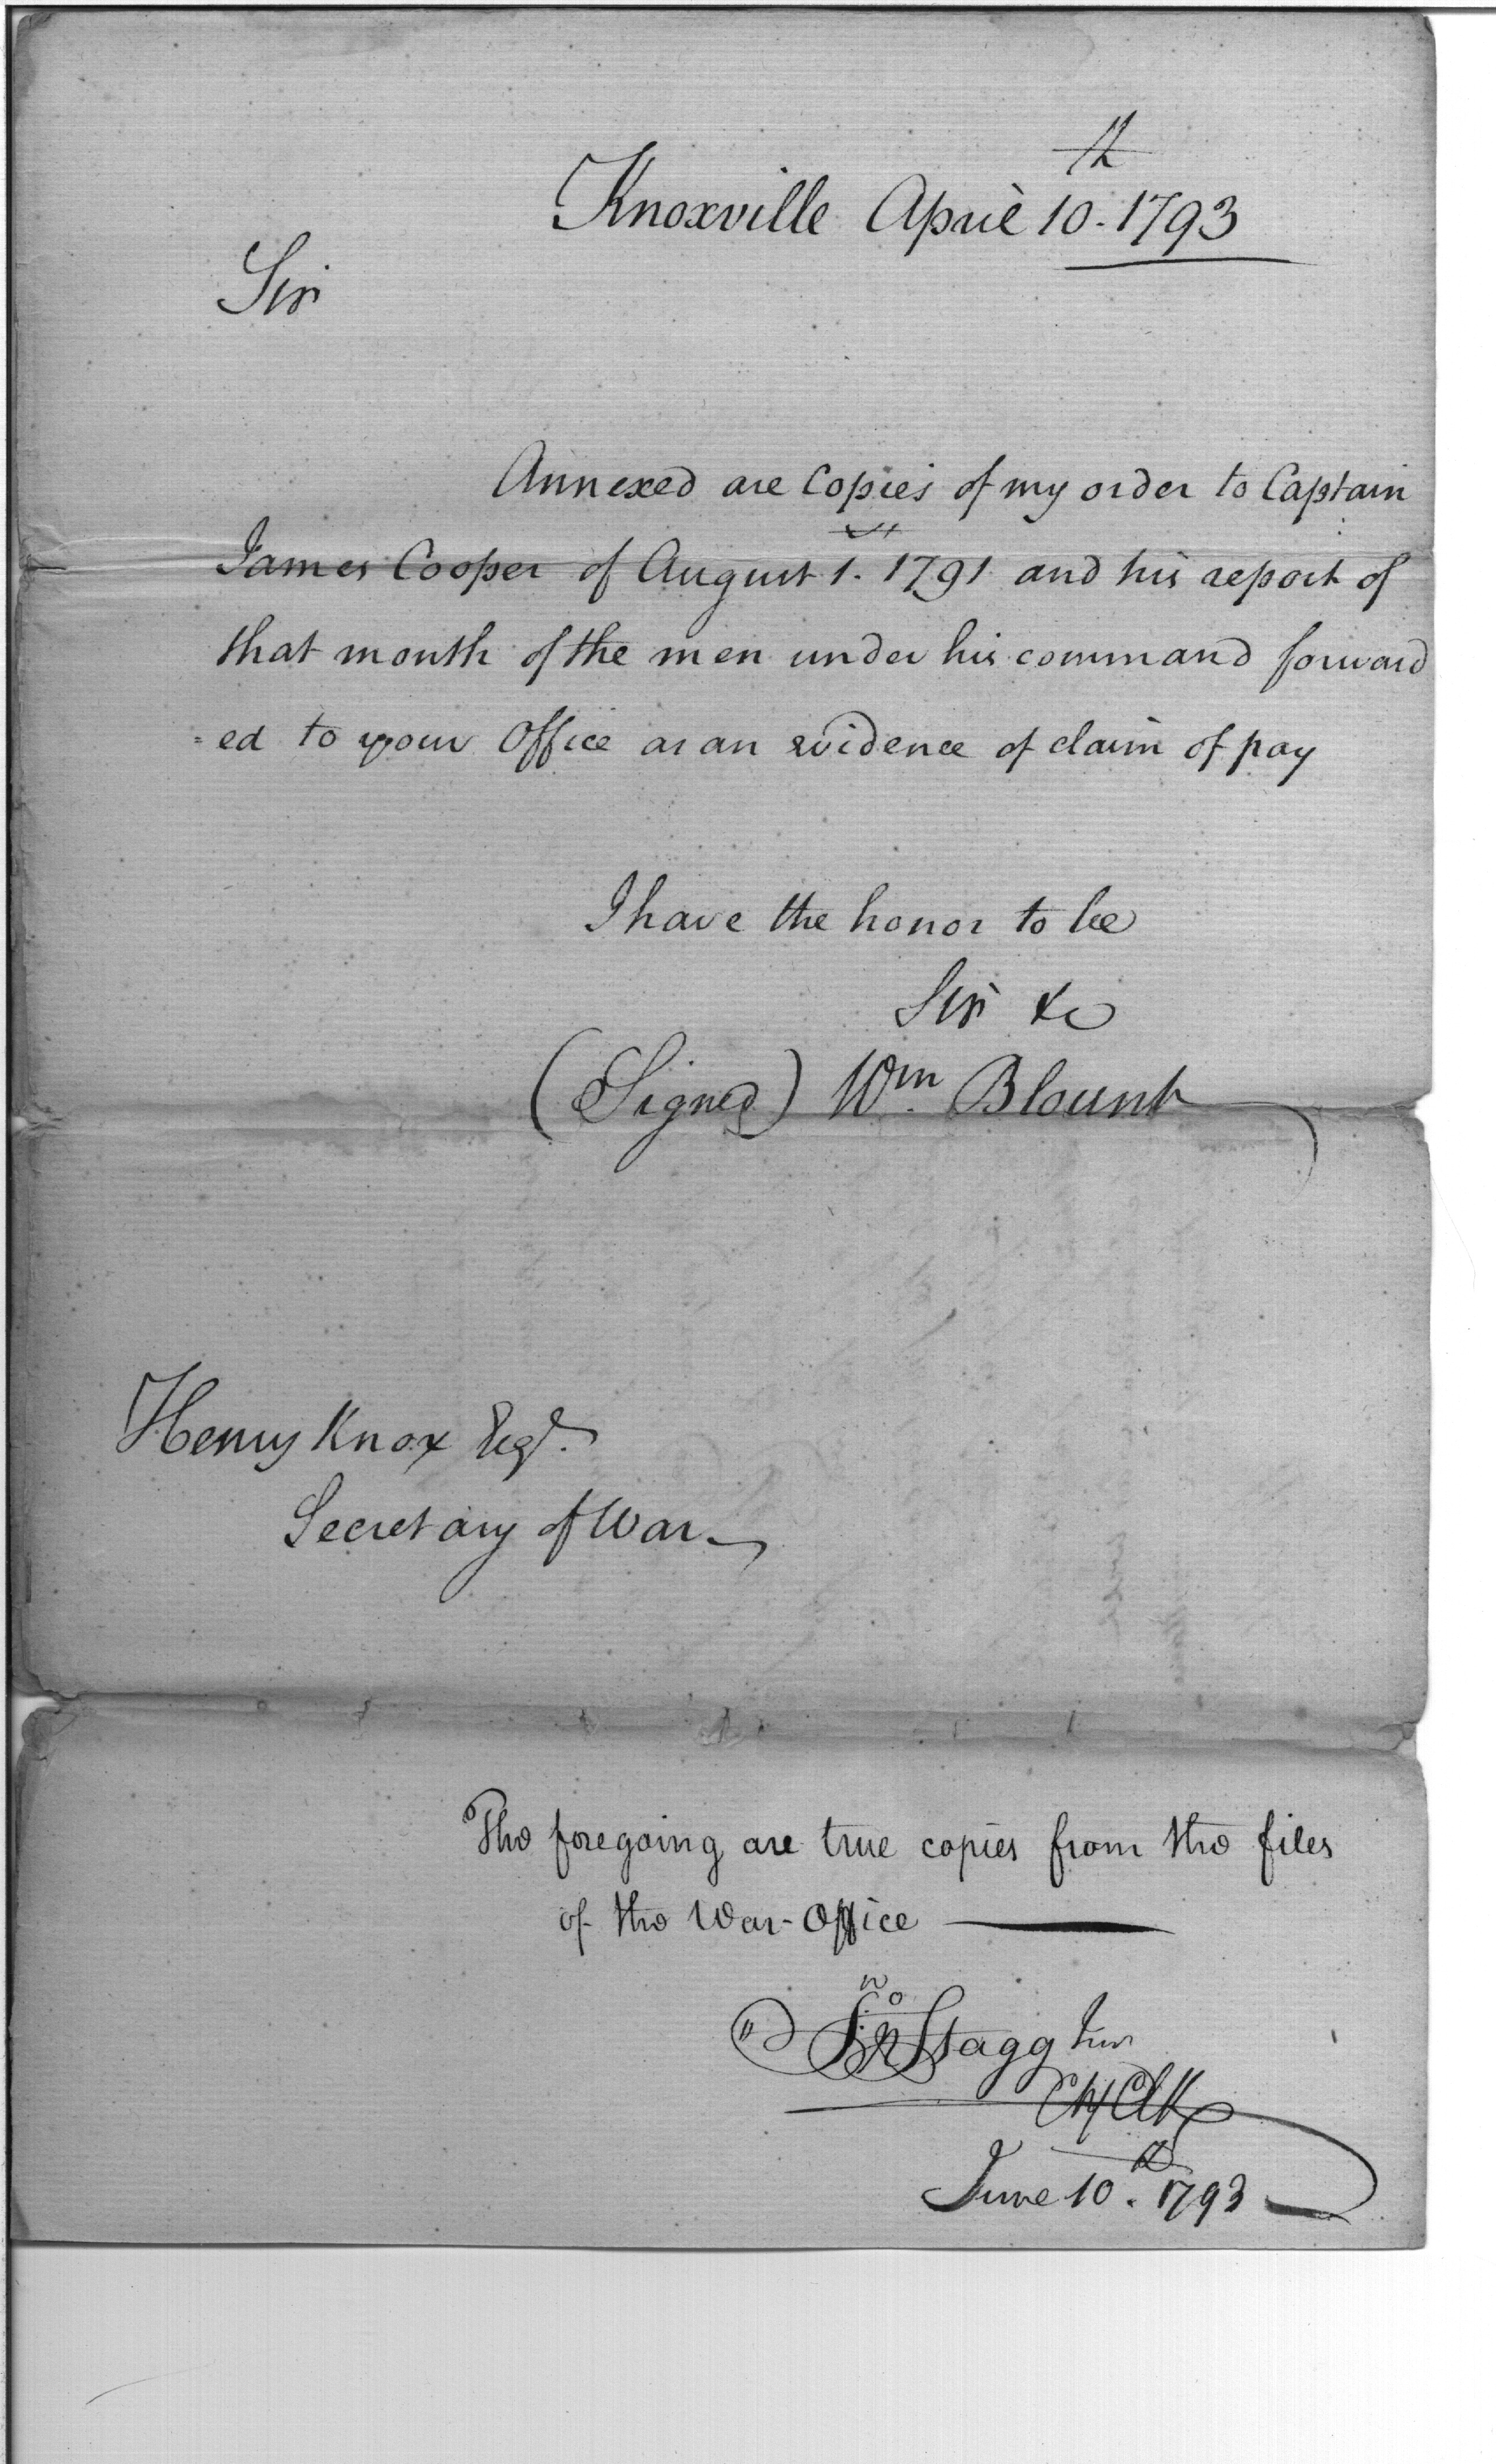 Knoxville April 10th. 1793
Sir
Annexed are Copies of my order to Captain
James Cooper of August 1st. 1791 and his report of
that month of the men under his command forward
=ed to your Office as an evidence of claim of pay
I have the honor to be
Sir &c
(Signed) Wm. Blount
Henry Knox Esqr.
Secretary of War
The foregoing are true copies from the files
of the War-Office
Jno Stagg Junr
Chf Clk
June 10th. 1793